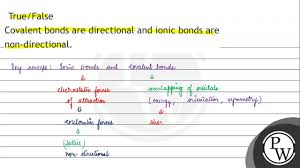 True/False
Covalent bonds are directional and ionic bonds are
non-directional.
Key concept: Ionic bonds and covalent bonds
electrostatic forces
of attraction
overlapping of orbitals
(energy, orientation, symmetry)
coulombic forces
(lattice)
non-directional
P
W